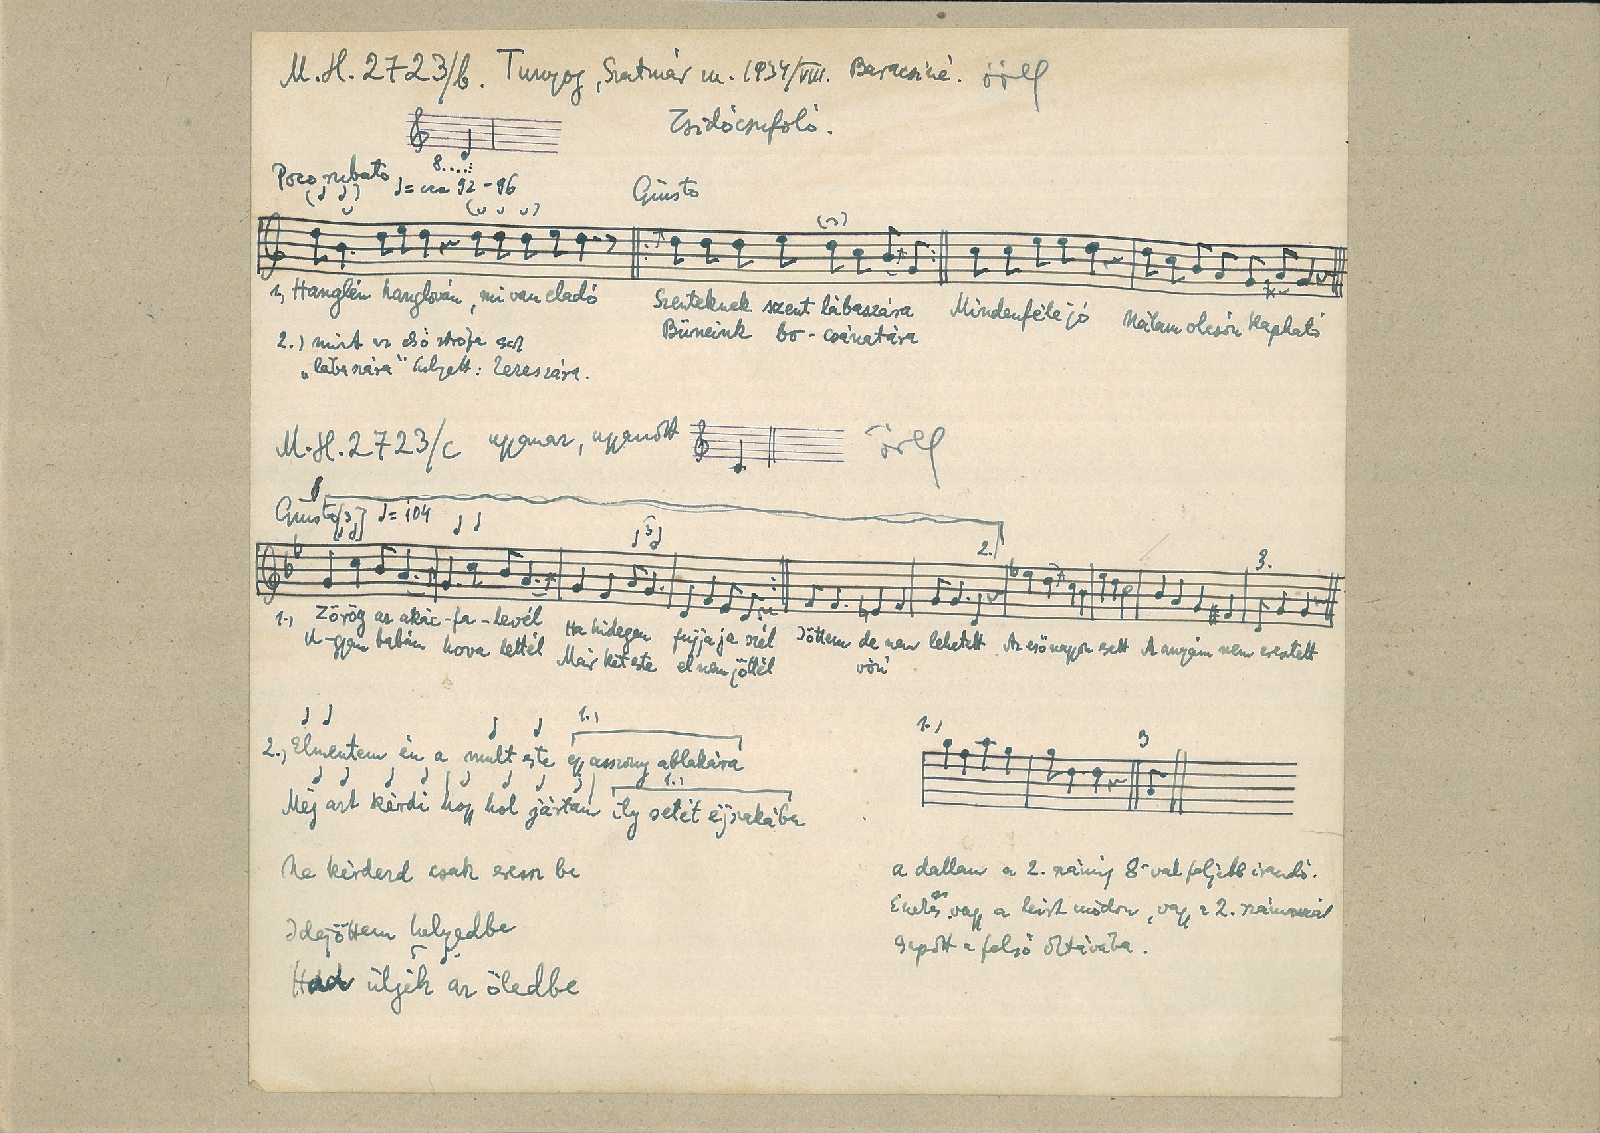 M.H. 2723/b. Tunyog, Szatmár m. 1934/VIII. Baracsiné.
Zsidócsufoló.
8.....
Poco rubato ♩= ca 92-96 Giusto
1, Hanglén hanglován, mi van eladó Szenteknek szent lábaszára Mindenféle jó Nálam olcsón kapható
Bűneink bo-csánatára
2.) mint az első strófa csak
„lábaszára" helyett: zeraszára.
M.H. 2723/c ugyanaz, ugyanott
8
Giusto ♩= 104
2. 3.
1., Zörög az akác-fa-levél Ha hidegen fujja ja szél Jöttem de nem lehetett Az eső nagyon esett A anyám nem eresztett
U-gyan babám hova lettél Már két este el nem jöttél vón'
1.,
2., Elmentem én a mult este egy asszony ablakára
1.,
Még azt kérdi hogy hol jártam ily setét éjszakába
Ne kérdezd csak eressz be
Idejöttem helyedbe
Had üljék az öledbe
1., 3
a dallam a 2. számig 8-val feljebb irandó.
Éneklés vagy a leirt módon, vagy a 2. számnál
ugrott a felső oktávába.